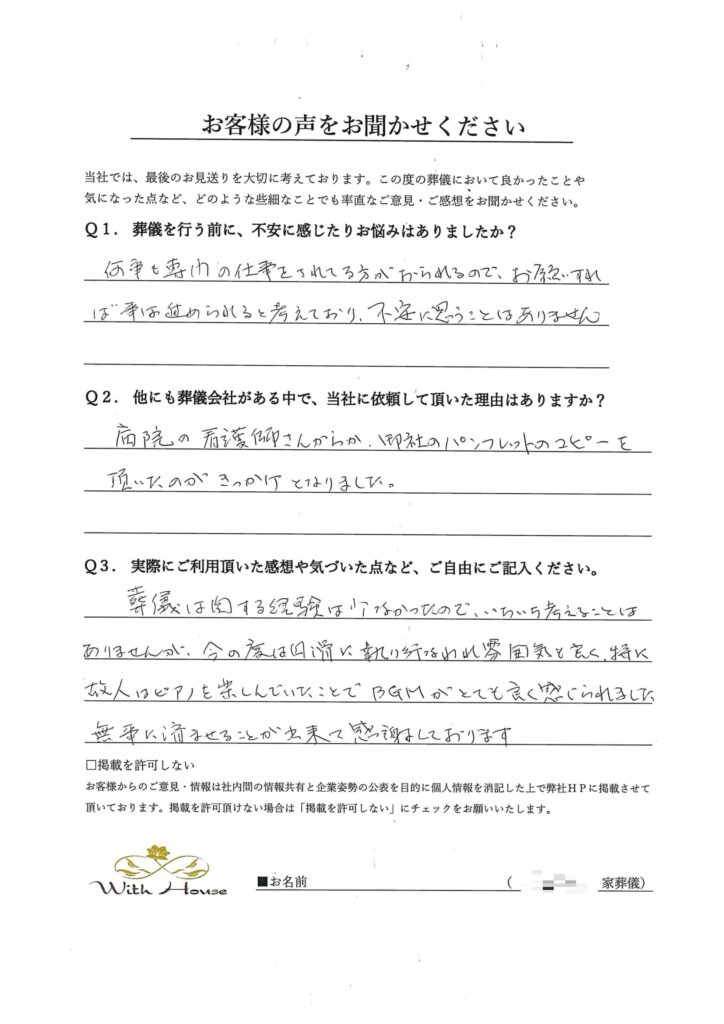 お客様の声をお聞かせください
当社では、最後のお見送りを大切に考えております。この度の葬儀において良かったことや
気になった点など、どのような些細なことでも率直なご意見・ご感想をお聞かせください。
Q1. 葬儀を行う前に、不安に感じたりお悩みはありましたか？
何事も専門の仕事をされてる方がおられるので、お願いすれ
ば事は進められると考えており、不安に思うことはありません
Q2. 他にも葬儀会社がある中で、当社に依頼して頂いた理由はありますか？
病院の看護師さんからか、御社のパンフレットのコピーを
頂いたのがきっかけとなりました。
Q3. 実際にご利用頂いた感想や気づいた点など、ご自由にご記入ください。
葬儀に関する経験は少なかったので、いちいち考えることは
ありませんが、今の度は円滑に執り行なわれ雰囲気も良く、特に
故人はピアノを楽しんでいたことでBGMがとても良く感じられました
無事に済ませることが出来て感謝しております
□掲載を許可しない
お客様からのご意見・情報は社内間の情報共有と企業姿勢の公表を目的に個人情報を消記した上で弊社HPに掲載させて
頂いております。掲載を許可頂けない場合は「掲載を許可しない」にチェックをお願いいたします。
With House
■お名前 （ 家葬儀）